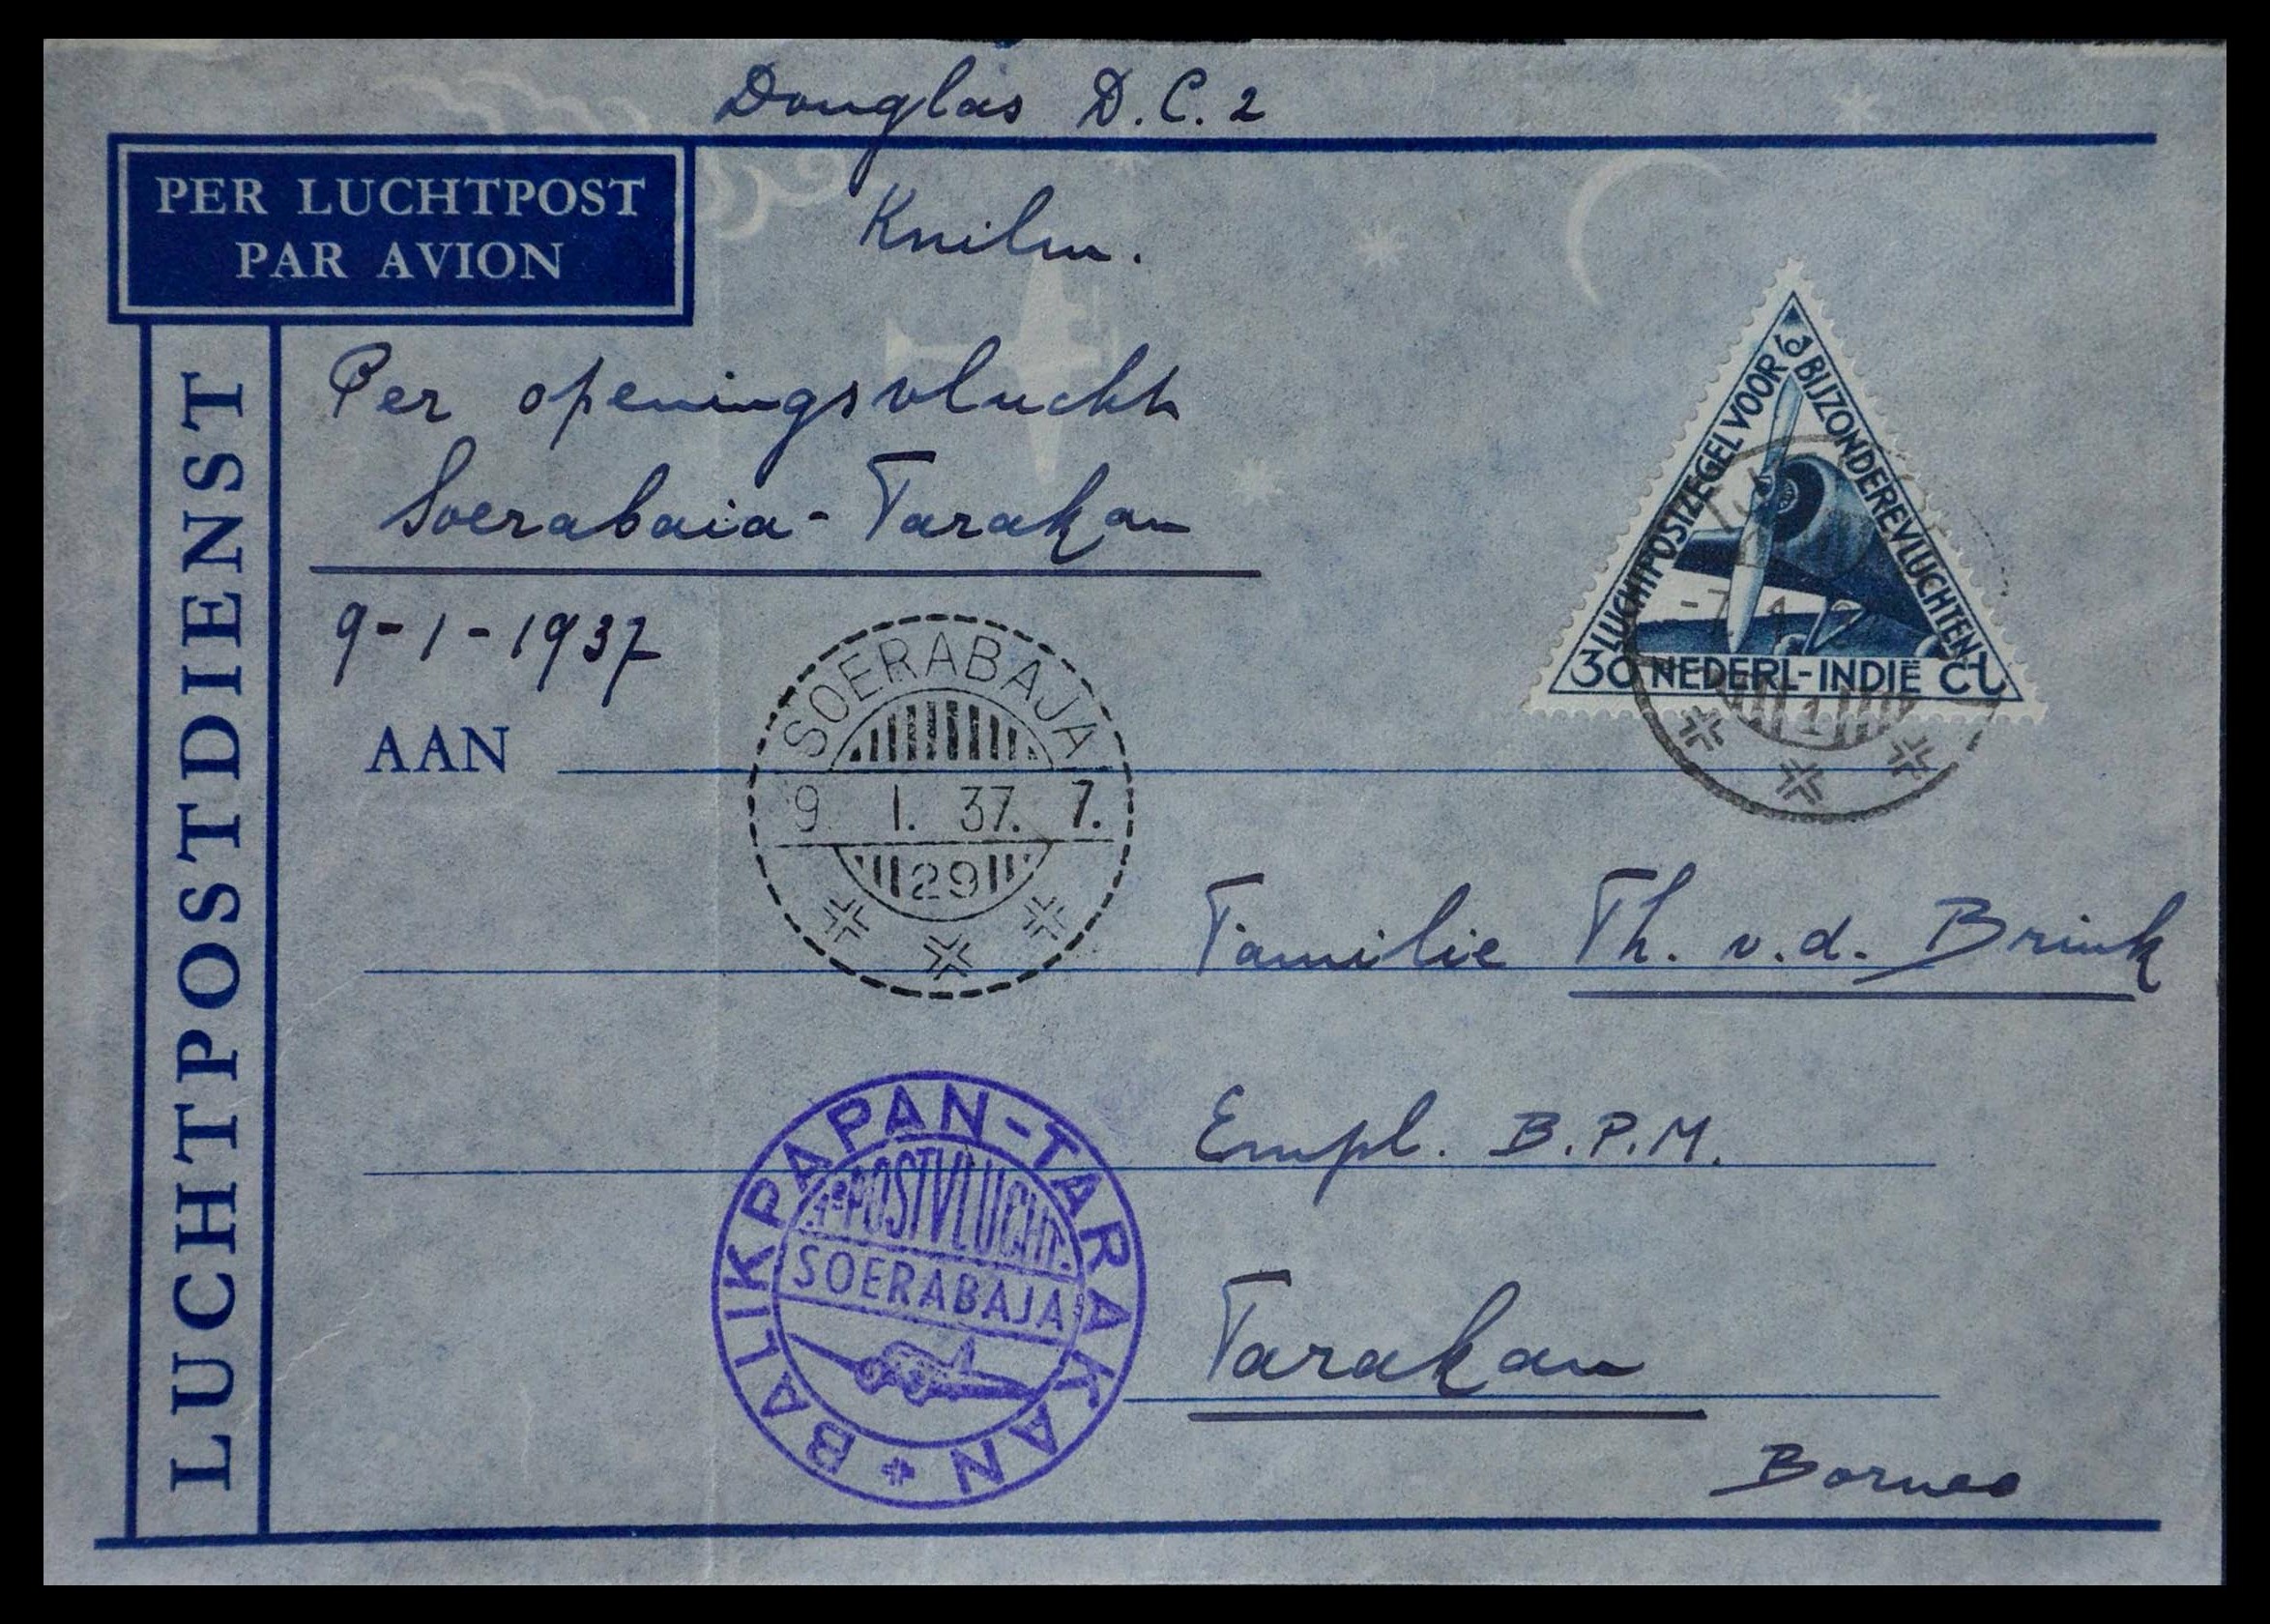 Douglas D.C.2
PER LUCHTPOST
PAR AVION
Knilm.
LUCHTPOSTDIENST
Per openingsvlucht
Soerabaia-Tarakan
9-1-1937
LUCHTPOSTZEGEL VOOR BIJZONDERE VLUCHTEN
30 NEDERL-INDIË CT
-7. 1
1
AAN
SOERABAJA
9. 1. 37. 7.
29
Familie Th. v.d. Brink
Empl. B.P.M.
Tarakan
Borneo
BALIKPAPAN-TARAKAN
1e POSTVLUCHT.
SOERABAJA